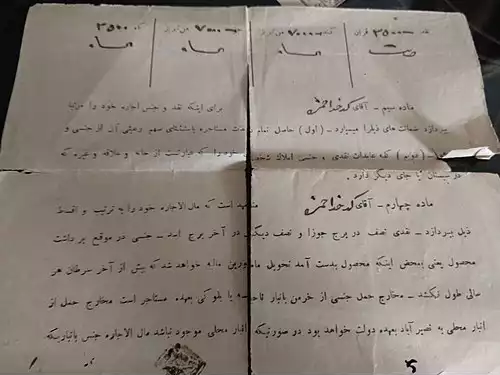 نقد ۳۵۰۰۰ قران گندم ۷۰۰۰۰ من آذری ۷۰۰۰ من آذری کاه ۳۵۰۰
ماده سیم - آقای کدخدا حمزه برای اینکه نقد و جنس اجاره خود را مرتبا
بپردازد ضمانت های ذیل را میسپارد - (اول) حاصل تمام مستاجره باستثنای سهم رعیتی آن از جنسی و
(دوم) کلیه عایدات نقدی و جنسی املاک شخصی خود را که عبارتست از خانه و علاقه و غیره که
در سیستان یا جای دیگر دارد.
ماده چهارم - آقای کدخدا حمزه متعهد است که مال الاجاره خود را به ترتیب و اقساط
ذیل بپردازد - نقدی نصف در برج جوزا و نصف دیگر در آخر برج اسد - جنسی در موقع برداشت
محصول یعنی بمحض اینکه محصول بدست آمد تحویل مامورین مالیه خواهد شد که بیش از آخر سرطان هر
سالی طول نکشد - مخارج حمل جنسی از خرمن بانبار یا بلوکی بعهده مستاجر است مخارج حمل از
انبار محلی به نصیر آباد بعهده دولت خواهد بود در صورتیکه انبار محلی موجود نباشد مال الاجاره جنسی بانباریکه